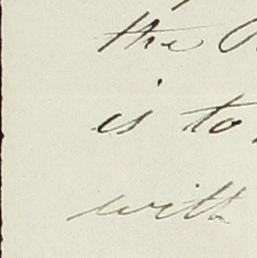 the
is to
with